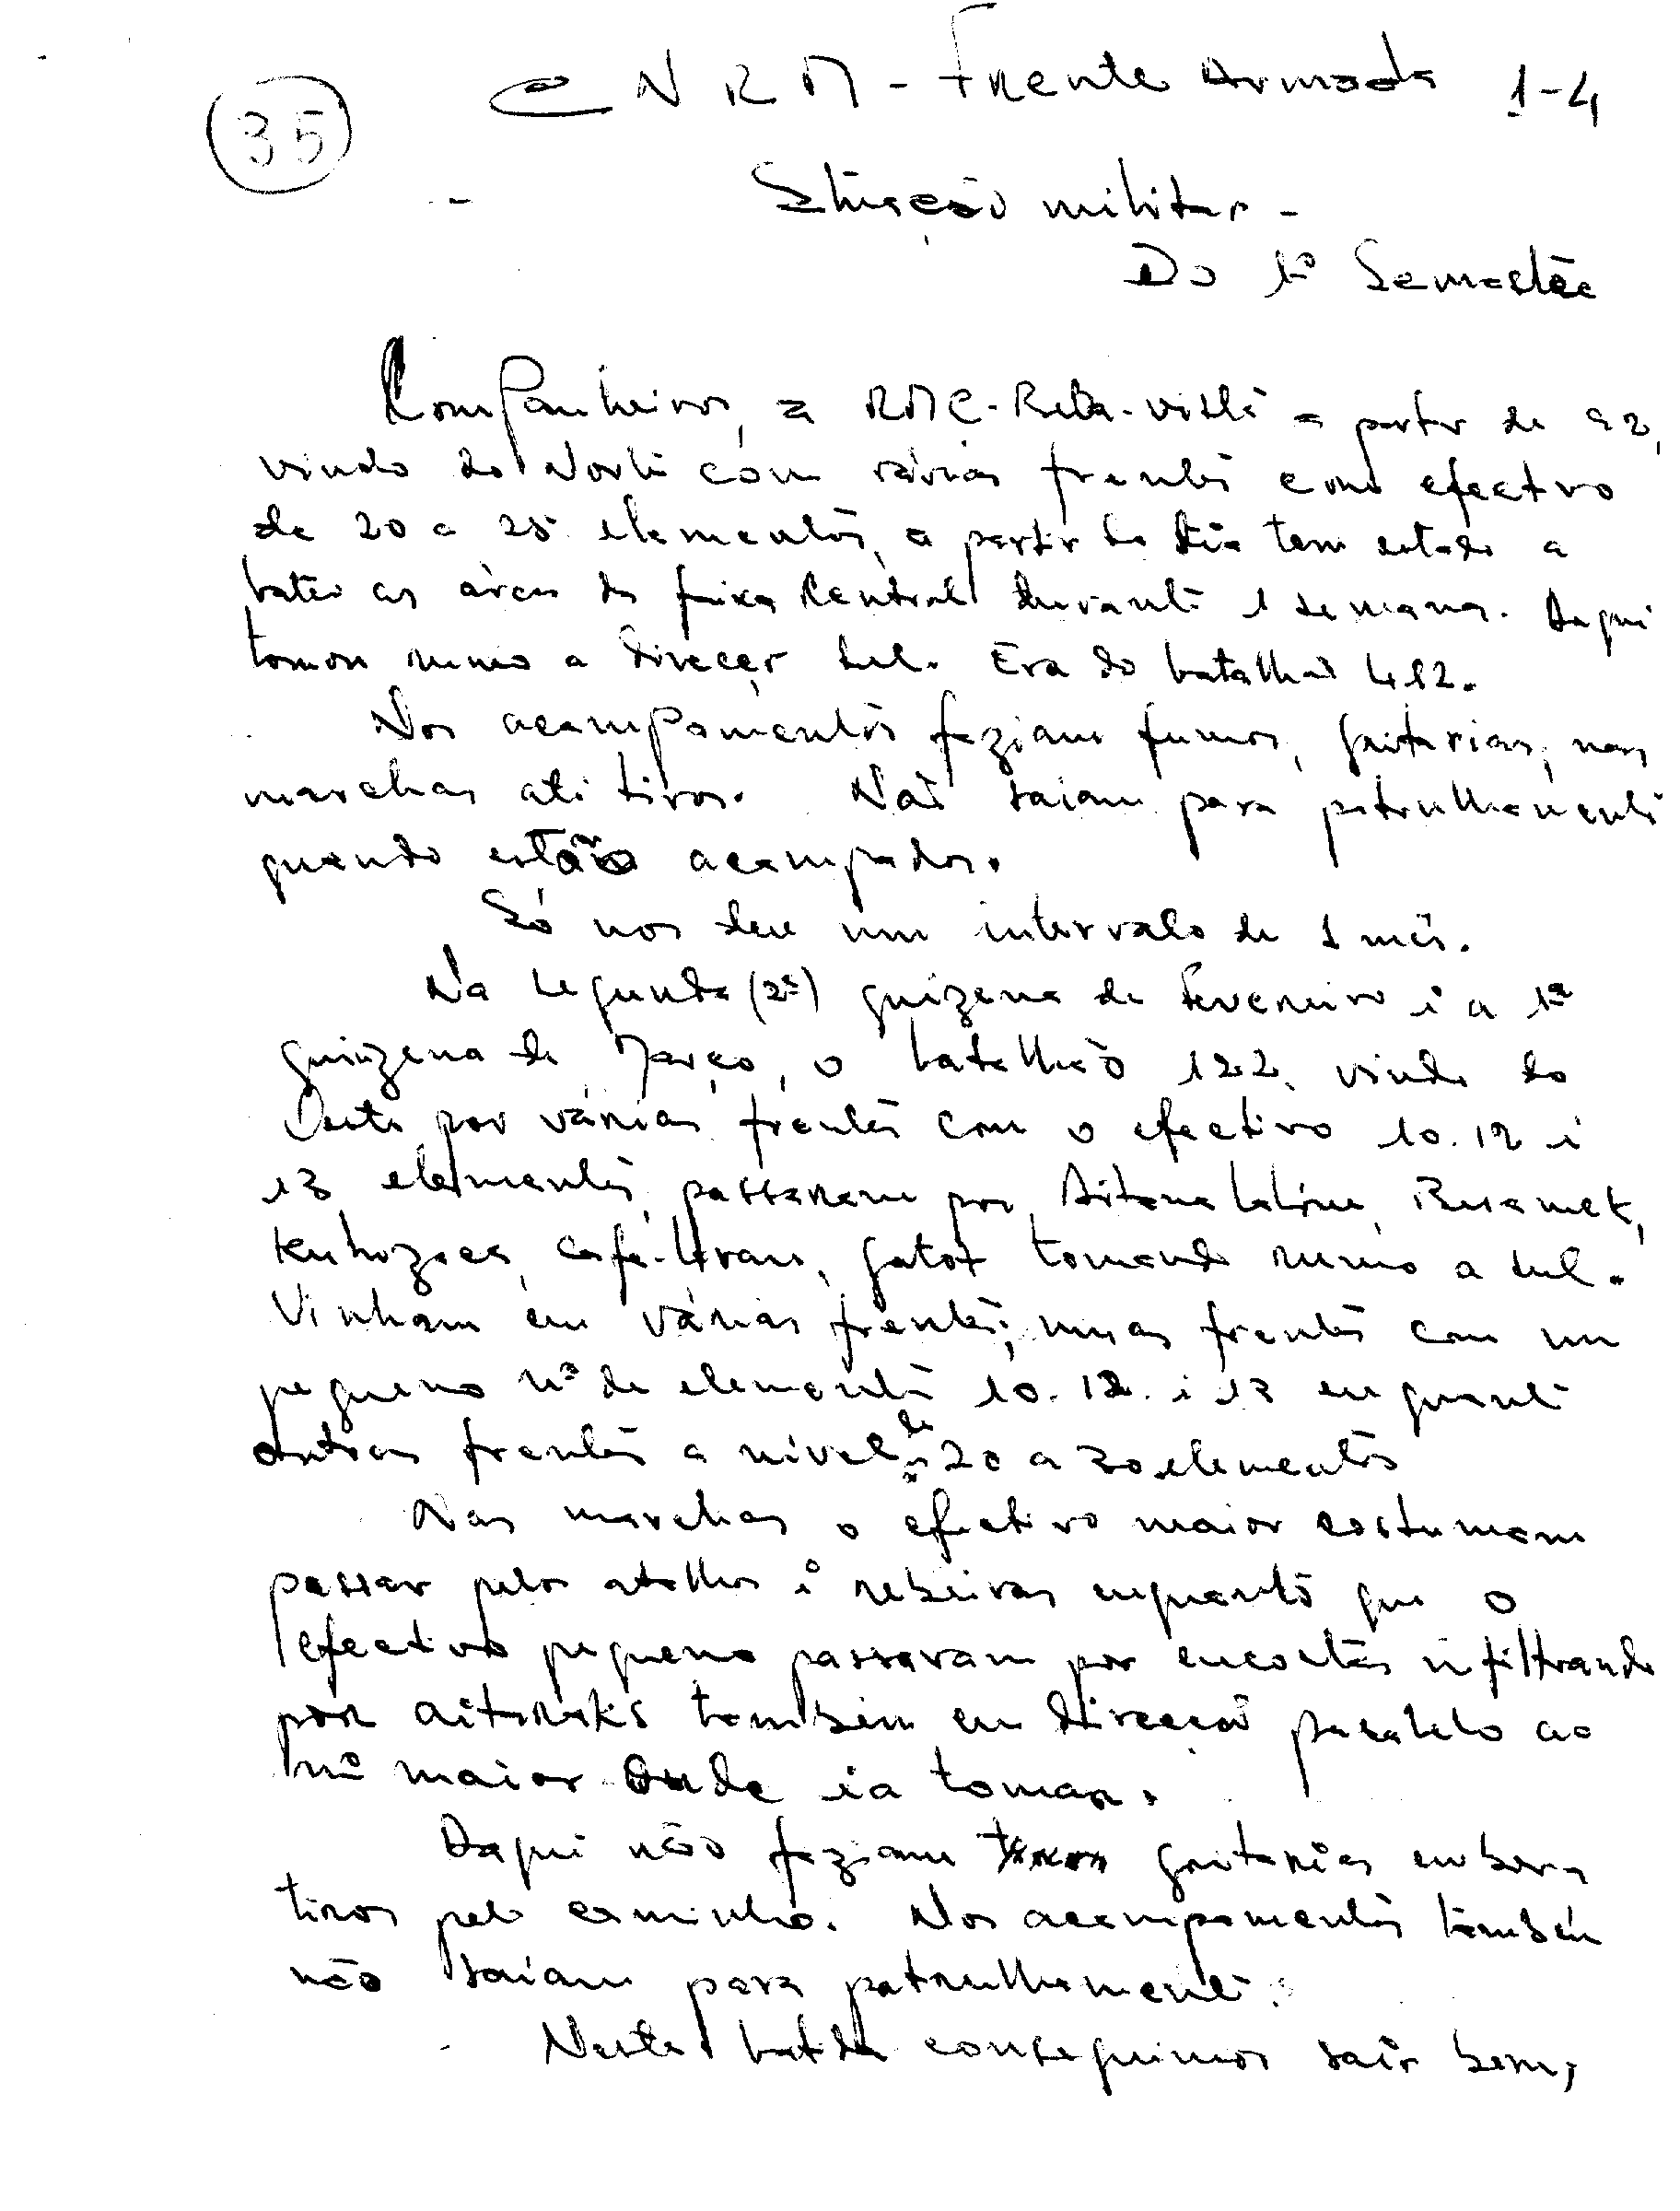 35
CNRM - Frente Armada 1-4
Situação militar -
Do 1º Semestre
Companheiros, a partir de 92,
vindo do Norte com várias frentes com efectivo
de 20 a 25 elementos, a partir tem estado a
bater as áreas da faixa Central durante 1 semana. Daqui
tomou rumo a direcçr sul. Era do batalhão 412.
Nos acampamentos faziam fumos, gritarias, nas
marchas até tiros. Não saiam para patrulhamento
quando estão acampados.
Só nos deu um intervalo de 1 mês.
Na segunda (2ª) quizena de Fevereiro i a 1ª
quizena de Março, o batalhão 122, vindo do
Oeste por várias frentes com o efectivo 10.12 i
13 elementos, passaram por
tomando rumo a sul.
Vinham em várias frentes; numas frentes com um
pequeno nº de elementos 10.12.i 13 enquanto
outras frentes a nível de 20 a 30 elementos
Nas marchas o efectivo maior costumam
passar pelos atalhos i rebeiras enquanto que o
efectivo pequeno passavam por encostas infiltrando
por aitaraks também em direcção paralelo ao
nº maior onde ia tomar.
Daqui não faziam gritarias embora
tiros pelo caminho. Nos acampamentos também
não saiam para patrulhamento.
Nesta batida conseguimos sair bem,